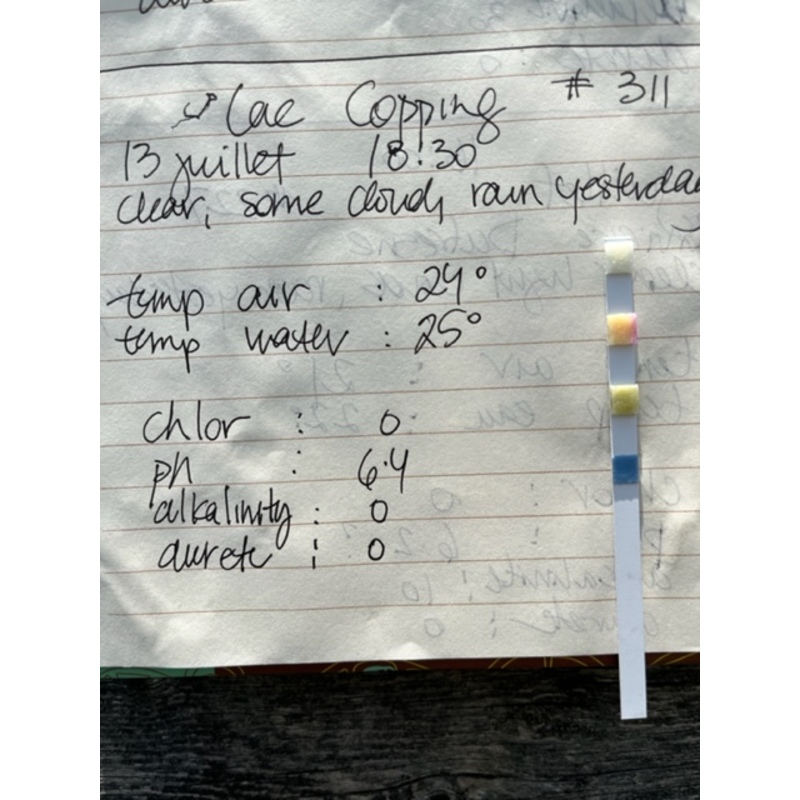 Lac Copping # 311
13 juillet 18:30
clear, some cloud, rain yesterday
temp air : 24°
temp water : 25°
chlor : 0
ph : 6.4
alkalinity : 0
durete : 0